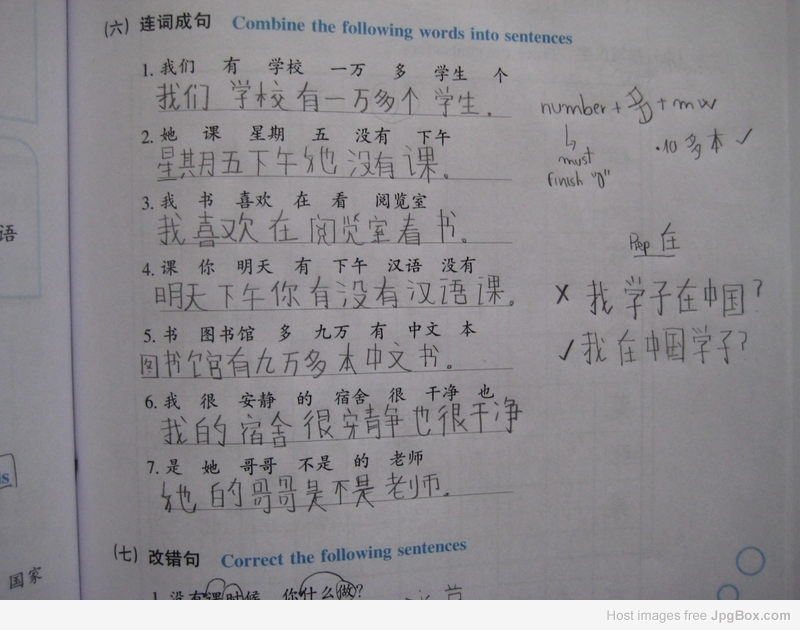 (六) 连词成句 Combine the following words into sentences
1. 我们 有 学校 一万 多 学生 个
我们 学校 有一万多个 学生.
number + 多 + mw
2. 她 课 星期 五 没有 下午
星期五下午她 没有 课.
must
finish "0"
·10 多本 ✓
3. 我 书 喜欢 在 看 阅览室
我 喜欢 在 阅览室看 书。
Prep 在
4. 课 你 明天 有 下午 汉语 没有
明天下午你有没有汉语课。
✗ 我 学子在中国?
5. 书 图书馆 多 九万 有 中文 本
图书馆有九万多本中文书.
✓ 我在中国学子?
6. 我 很 安静 的 宿舍 很 干净 也
我的 宿舍 很 穿静也很干净
7. 是 她 哥哥 不是 的 老师
她的哥哥是不是老师.
(七) 改错句 Correct the following sentences
1. 没有课时候 你什么做?
语
国家
Host images free JpgBox.com